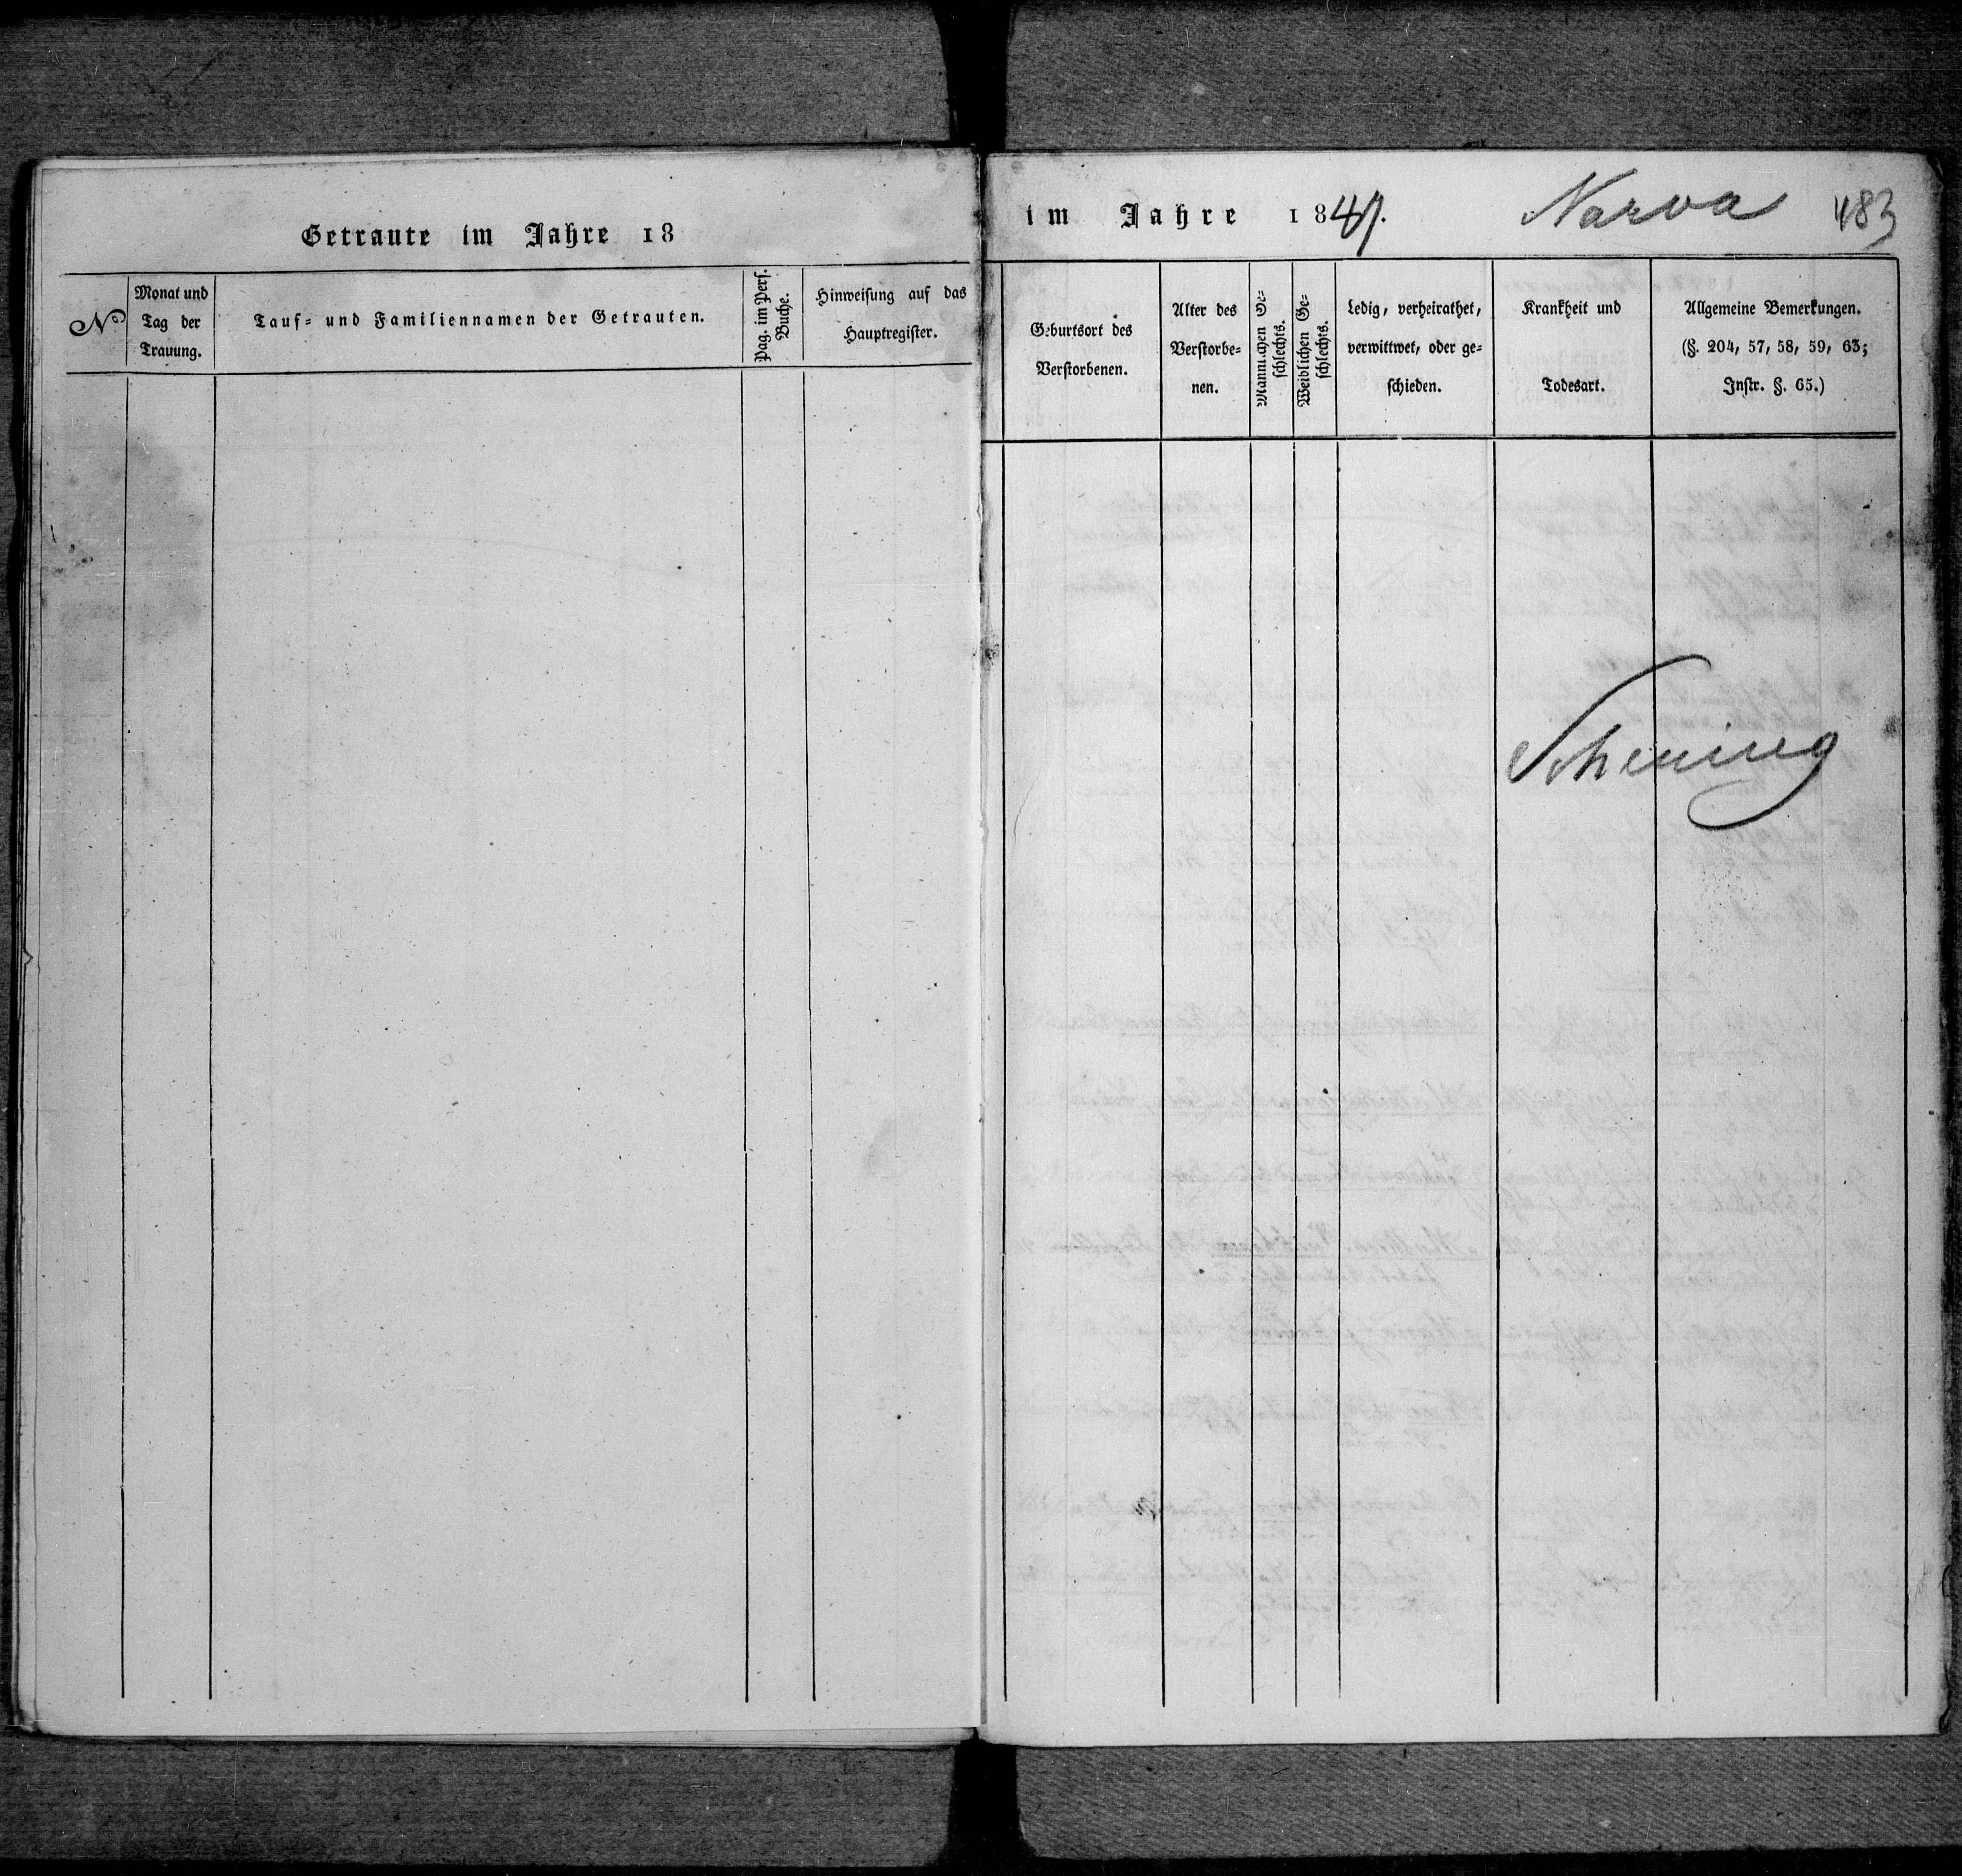 Getraute im Jahre 18
№
Monat und
Tag der
Trauung.
Tauf- und Familiennamen der Getrauten.
Pag. im Pers.
Buche.
Hinweisung auf das
Hauptregister.
im Jahre 1847.
Narva
483
Geburtsort des
Verstorbenen.
Alter des
Verstorbe-
nen.
Männlichen Ge-
schlechts.
Weiblichen Ge-
schlechts.
Ledig, verheirathet,
verwittwet, oder ge-
schieden.
Krankheit und
Todesart.
Allgemeine Bemerkungen.
(§. 204, 57, 58, 59, 63;
Instr. §. 65.)